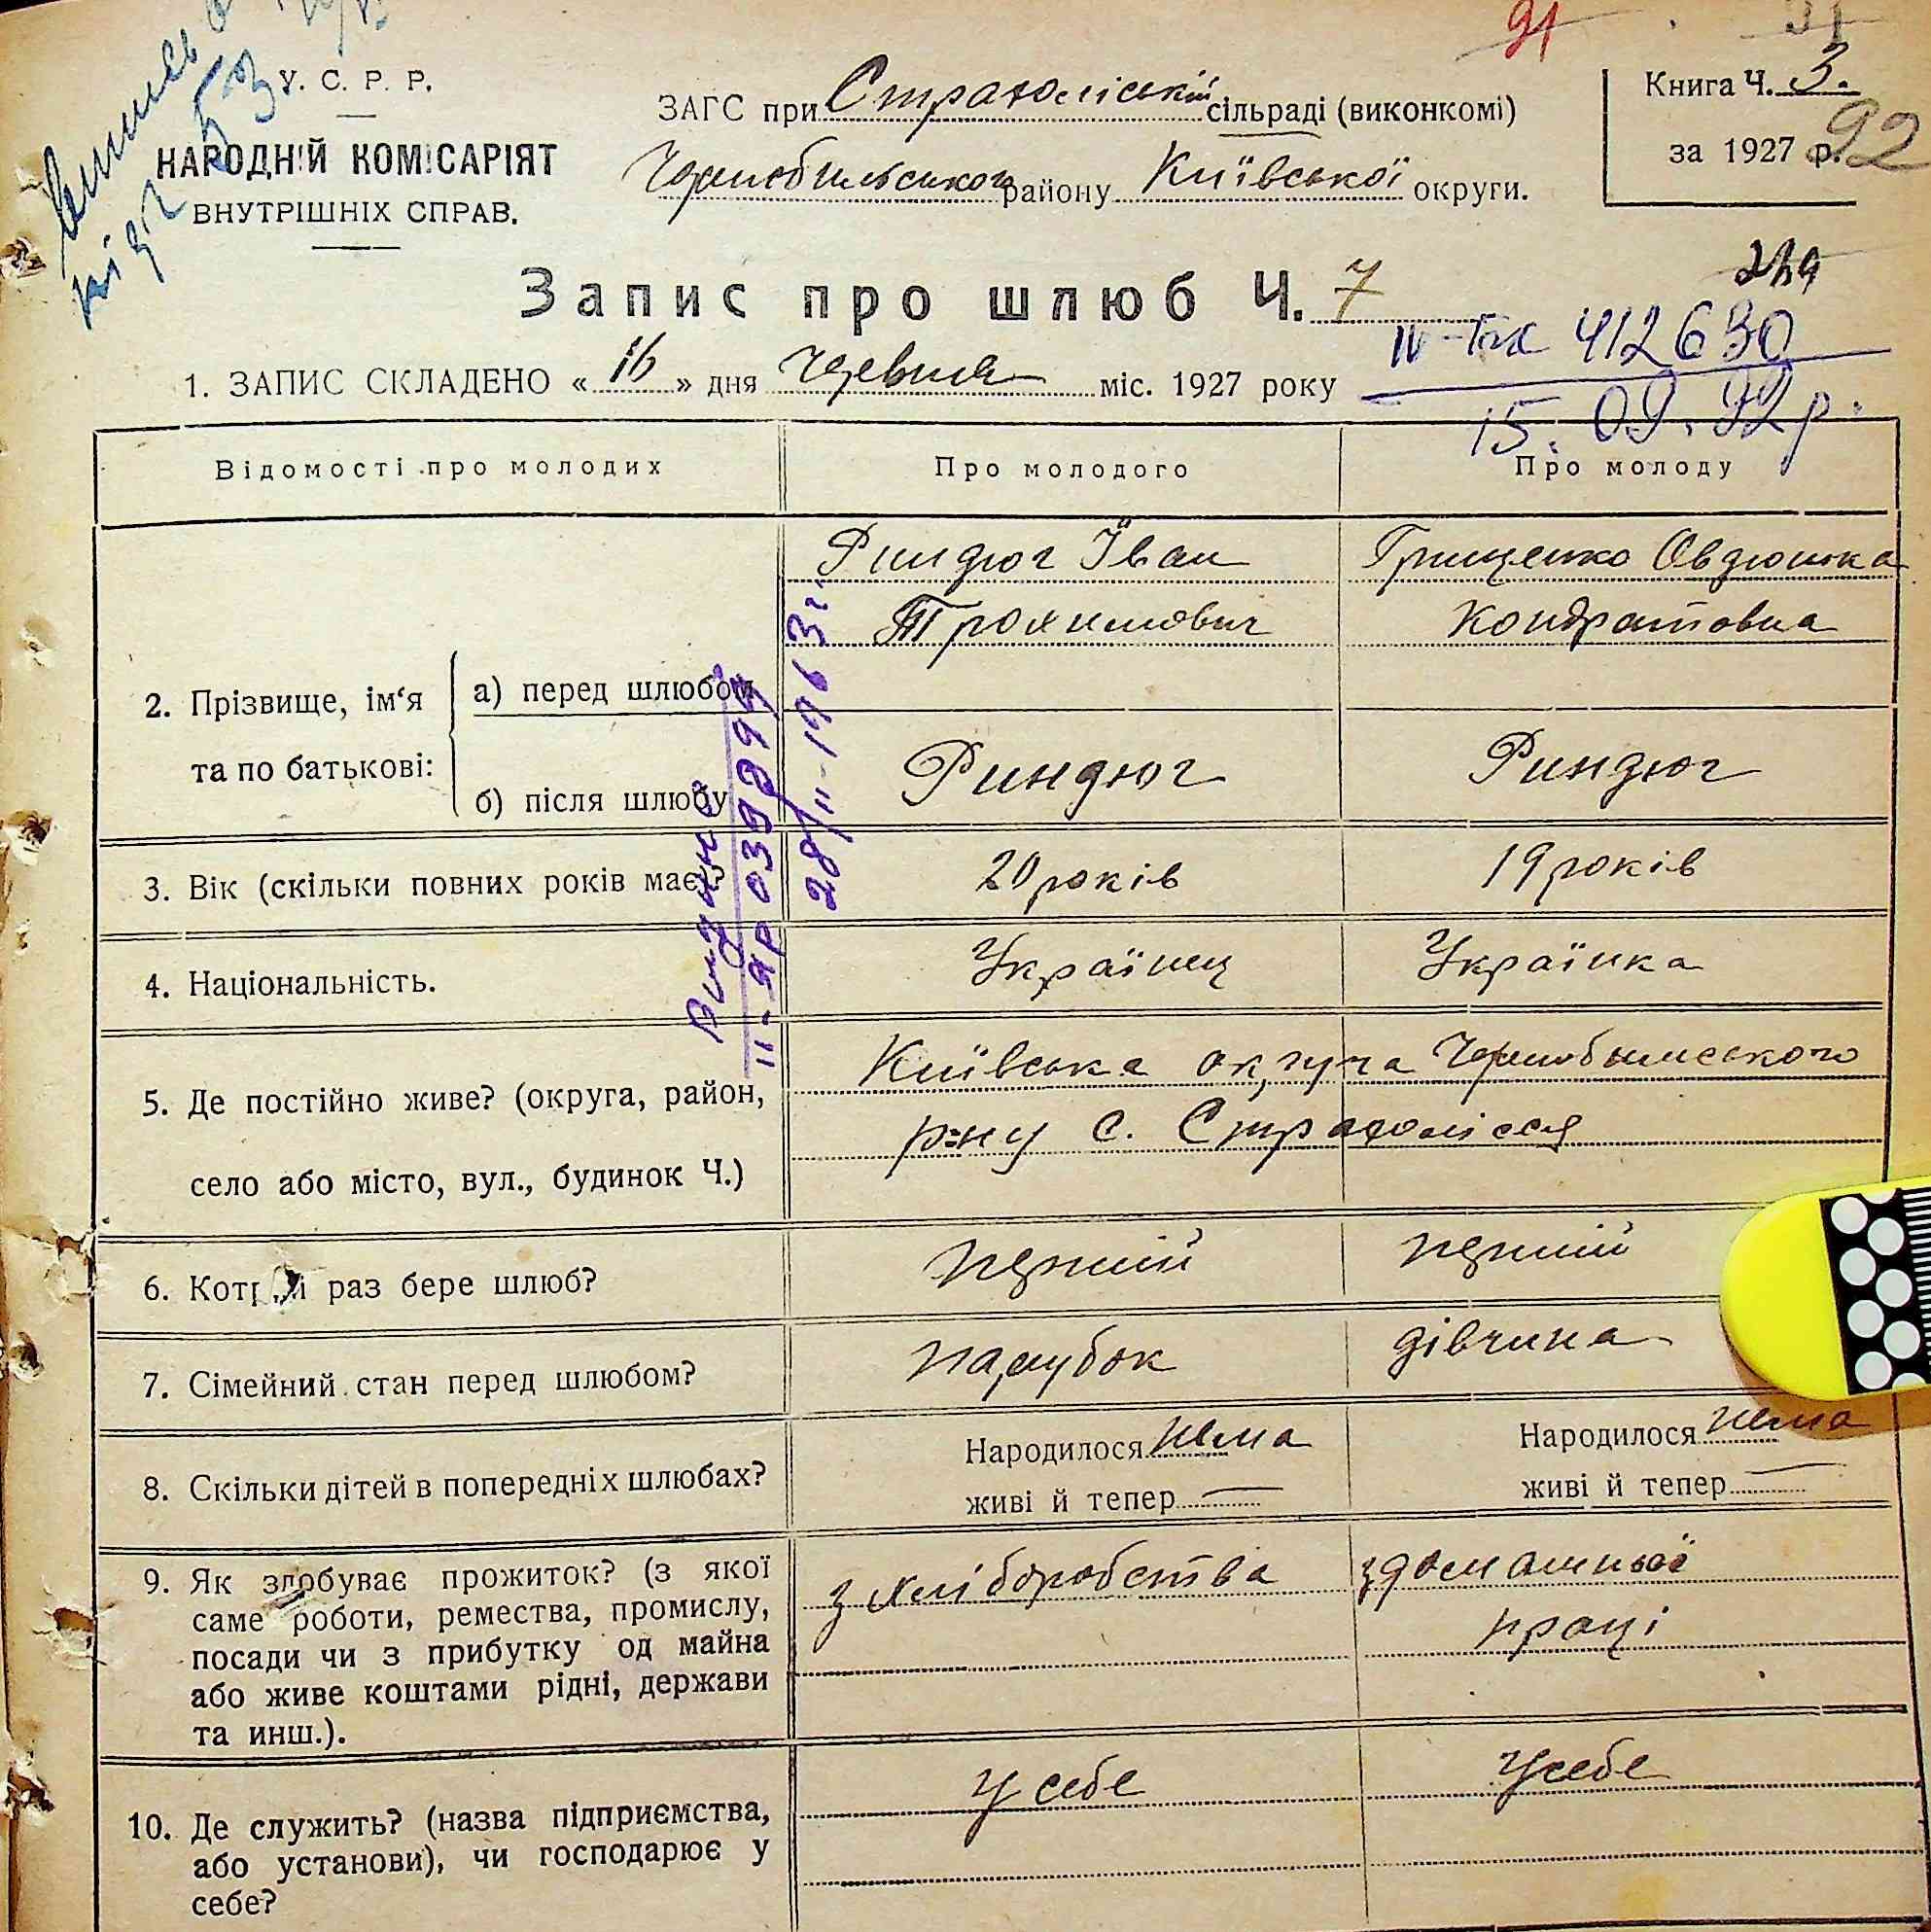 91
У. С. Р. Р.
НАРОДНІЙ КОМІСАРІЯТ
ВНУТРІШНІХ СПРАВ.
ЗАГС при Страхоліській сільраді (виконкомі)
Чернобильського району Київської округи.
Книга Ч. 3.
за 1927 р.
92
Запис про шлюб Ч. 7
IV-БК 412630
15.09.92р.
1. ЗАПИС СКЛАДЕНО « 16 » дня червня міс. 1927 року
Відомості про молодих Про молодого Про молоду
Риндюг Їван Грищенко Овдюшка
Трохимович Кондратовна
2. Прізвище, ім‘я та по батькові:
а) перед шлюбом
б) після шлюбу Риндюг Риндюг
3. Вік (скільки повних років має)? 20 років 19 років
4. Національність. Українец Українка
5. Де постійно живе? (округа, район,
село або місто, вул., будинок Ч.)
Київська округа Чернобильського
р=ну с. Страхолісся
6. Котрий раз бере шлюб? перший перший
7. Сімейний стан перед шлюбом? парубок дівчина
8. Скільки дітей в попередніх шлюбах?
Народилося нема Народилося нема
живі й тепер — живі й тепер —
9. Як здобуває прожиток? (з якої
саме роботи, ремества, промислу,
посади чи з прибутку од майна
або живе коштами рідні, держави
та инш.).
з хліборобства з домашньої
праці
10. Де служить? (назва підприємства,
або установи), чи господарює у
себе?
у себе у себе
28/II-1963г.